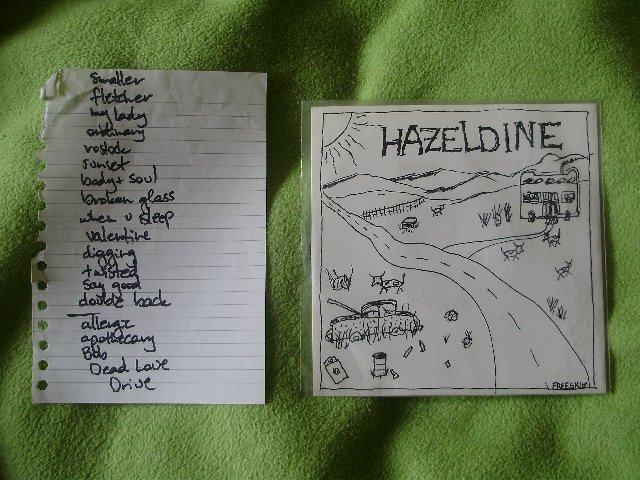 smaller
fletcher
my lady
ordinary
sunset
body + soul
broken glass
when u sleep
valentine
digging
twisted
say good
double back
allergic
apothecary
Bob
Dead Love
Drive
HAZELDINE